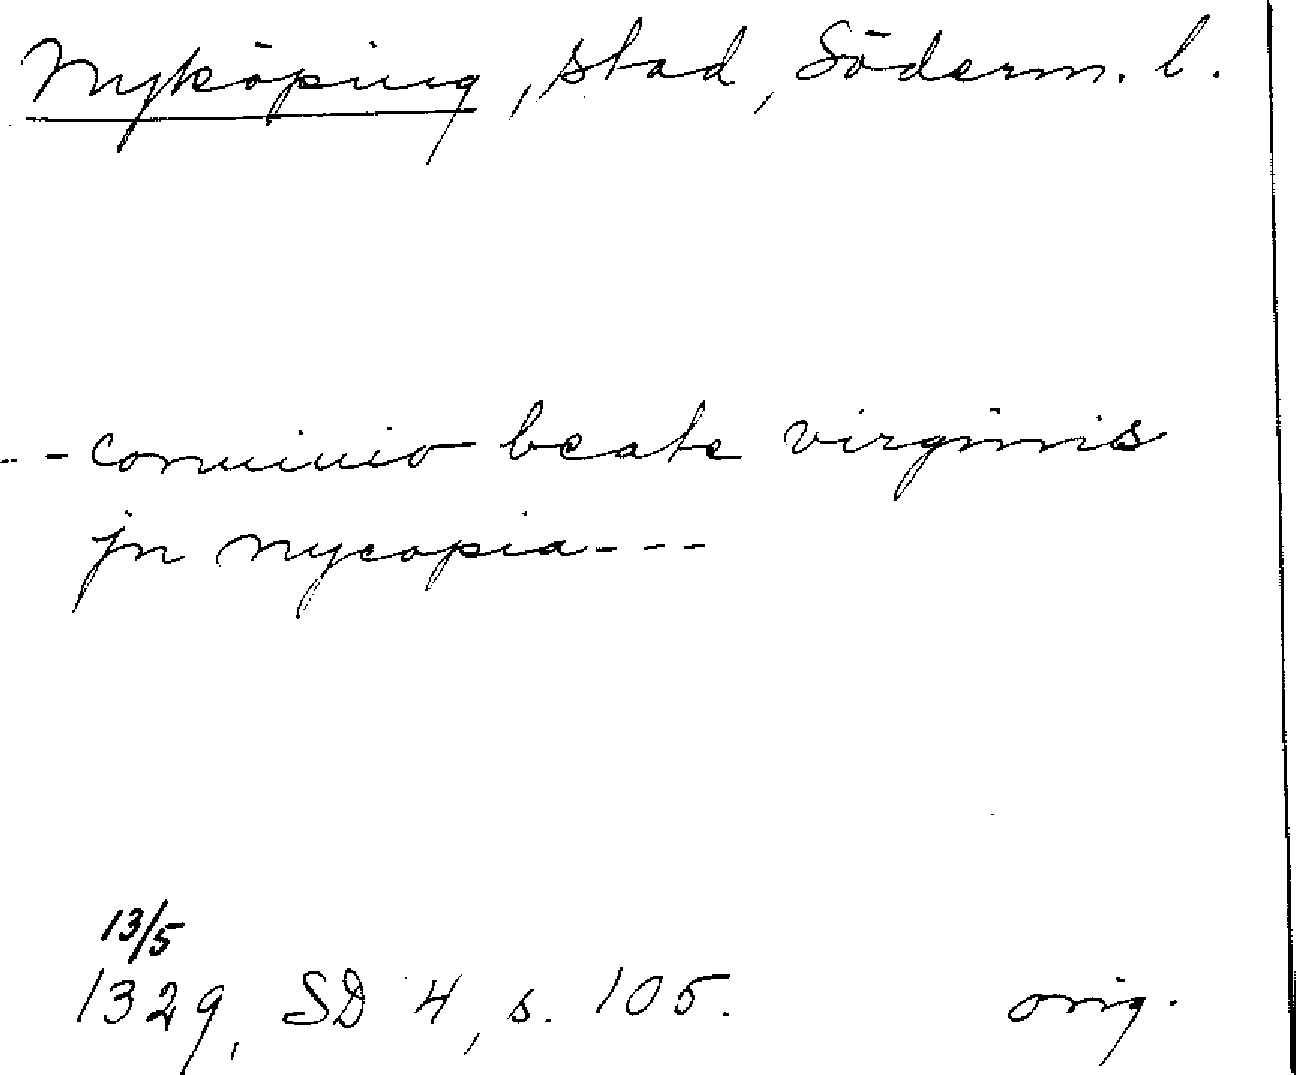 Nyköping, stad, Söderm. l.
-- conuiuio beate virginis
jn nycopia---
13/5
1329, SD 4, s. 105. orig.